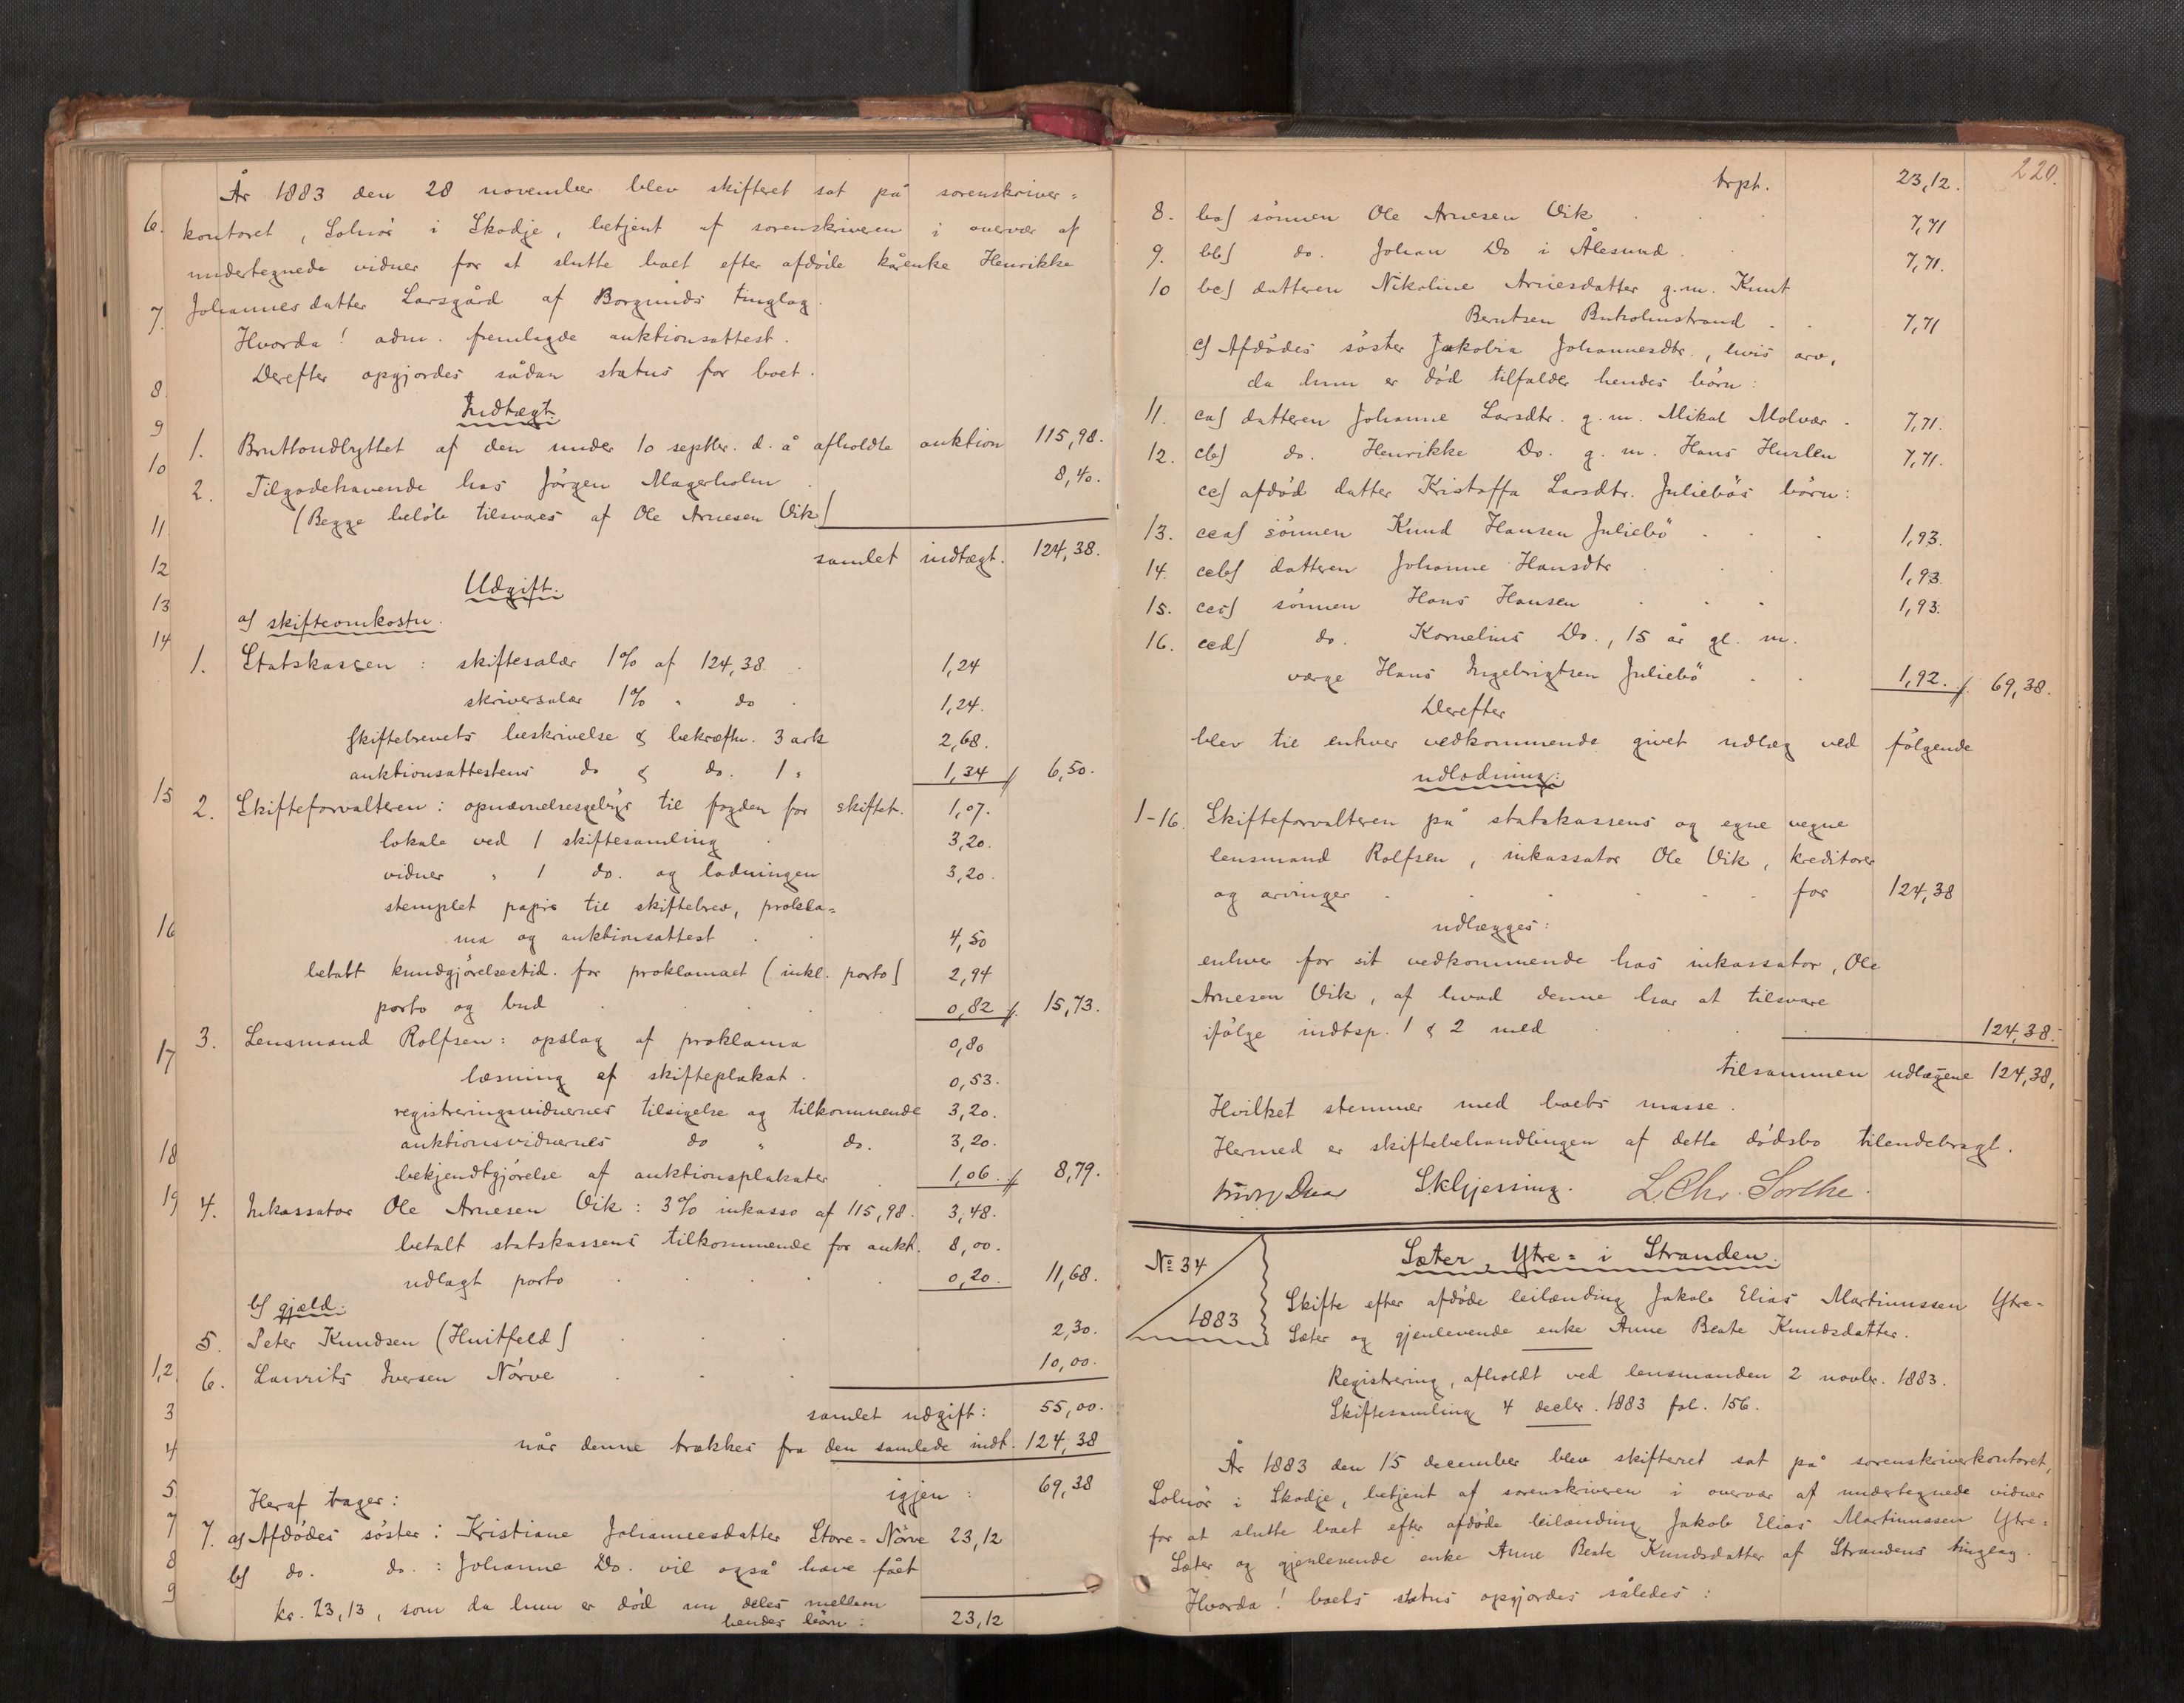 År 1883 den 28 november blev skifteret sat på sorenskriver=
6. kontoret, Solnör i Skodje, betjent af sorenskriveren i overvær af
undertegnede vidner for at slutte boet efter afdöde kårenke Henrikke
7. Johannesdatter Larsgård af Borgunds tinglag.
Hvorda! adm. fremlagde auktionsattest.
Derefter opgjordes sådan status for boet.
8.
Indtægt:
9
1. Bruttoudbyttet af den under 10 septbr. d. å afholdte auktion 115,98.
10
2. Tilgodehavende hos Jörgen Magerholm . 8,40.
(Begge belöb tilsvares af Ole Arnesen Vik)
11
samlet indtægt. 124,38.
12
Udgift.
13
a) skifteomkostn.
14
1. Statskassen : skiftesalær 1% af 124,38. . 1,24
skriversalær 1% " do . 1,24.
skiftebrevets beskrivelse & bekræftn. 3 ark 2,68.
auktionsattestens do & do. 1 " 1,34 // 6,50.
15
2. Skifteforvalteren : opnævnelsesgebyr til fogden for skiftet. 1,07.
lokale ved 1 skiftesamling . 3,20.
vidner " 1 do. og lodningen 3,20.
stemplet papir til skiftebrev, prokla=
16
ma og auktionsattest . . 4,50
betalt kundgjörelsestid. for proklamaet (inkl. porto) 2,94
porto og bud . . . . 0,82 // 15,73.
3. Lensmand Rolfsen : opslag af proklama 0,80
17
læsning af skifteplakat . 0,53.
registreringsvidnernes tilsigelse og tilkommende 3,20.
auktionsvidnernes do " do. 3,20.
18
bekjendtgjörelse af auktionsplakater . 1,06. // 8,79.
19
4. Inkassator Ole Arnesen Vik : 3% inkasso af 115,98. 3,48.
betalt statskassens tilkommende for aukt. 8,00.
udlagt porto . . . . 0,20. 11,68.
b) gjæld:
5. Peter Knudsen (Huitfeld) . . . 2,30.
1,2
6. Laurits Iversen Nörve . . . 10,00.
3
samlet udgift: 55,00.
4
når denne trækkes fra den samlede indt. 124,38
5
igjen : 69,38
Heraf tager:
7
7. a) Afdödes söster : Kristiane Johannesdatter Store=Nörve 23,12
8
b) do. do. : Johanne Do. vil også have fået
9
kr. 23,13, som da hun er död nu deles mellem
hendes börn : 23,12
220.
trpt. 23,12.
8. ba) sönnen Ole Arnesen Vik . . . 7,71
9. bb) do. Johan Do i Ålesund . . 7,71.
10 bc) datteren Nikoline Arnesdatter g.m. Knut
Berntsen Buholmstrand . . 7,71
c) Afdödes söster Jakobia Johannesdtr., hvis arv,
da hun er död tilfalder hendes börn:
11. ca) datteren Johanne Larsdtr. g.m. Mikal Molvær . 7,71.
12. cb) do. Henrikke Do. g.m. Hans Hurlen 7,71.
cc) afdöd datter Kristoffa Larsdtr. Juliebös börn:
13. cca) sönnen Knud Hansen Juliebö . . . 1,93.
14. ccb) datteren Johanne Hansdtr . . . 1,93.
15. ccc) sönnen Hans Hansen . . . 1,93.
16. ccd) do. Kornelius Do., 15 år gl. m.
værge Hans Ingebrigtsen Juliebö . . 1,92. // 69,38.
Derefter
blev til enhver vedkommende givet udlæg ved fölgende
udlodning:
1-16. Skifteforvalteren på statskassens og egne vegne
lensmand Rolfsen, inkassator Ole Vik, kreditorer
og arvinger . . . . . for 124,38
udlægges:
enhver for sit vedkommende hos inkassator, Ole
Arnesen Vik, af hvad denne har at tilsvare
ifölge indtsp. 1 & 2 med . . 124,38.
tilsammen udlægene 124,38.
Hvilket stemmer med boets masse.
Hermed er skiftebehandlingen af dette dödsbo tilendebragt.
S.k.Gjersing. L.Chr. Sorthe.
No 34
1883
Sæter, Ytre= i Stranden.
Skifte efter afdöde leilænding Jakob Elias Martinussen Ytre-
Sæter og gjenlevende enke Anne Beate Knudsdatter.
Registrering, afholdt ved lensmanden 2 novbr. 1883.
Skiftesamling 4 decbr. 1883 fol. 156.
År 1883 den 15 december blev skifteret sat på sorenskriverkontoret,
Solnör i Skodje, betjent af sorenskriveren i overvær af undertegnede vidner
for at slutte boet efter afdöde leilænding Jakob Elias Martinussen Ytre=
Sæter og gjenlevende enke Anne Beate Knudsdatter af Strandens tinglag.
Hvorda! boets status opgjordes således: